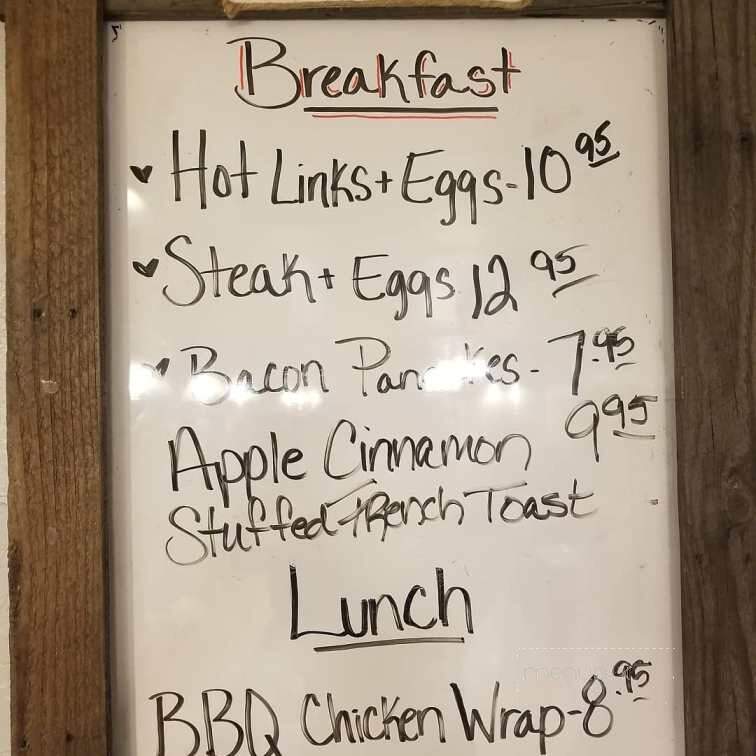 Breakfast
Hot Links + Eggs - 10 95
Steak + Eggs 12 95
Bacon Pancakes - 7.95
Apple Cinnamon 9 95
Stuffed French Toast
Lunch
BBQ Chicken Wrap - 8.95